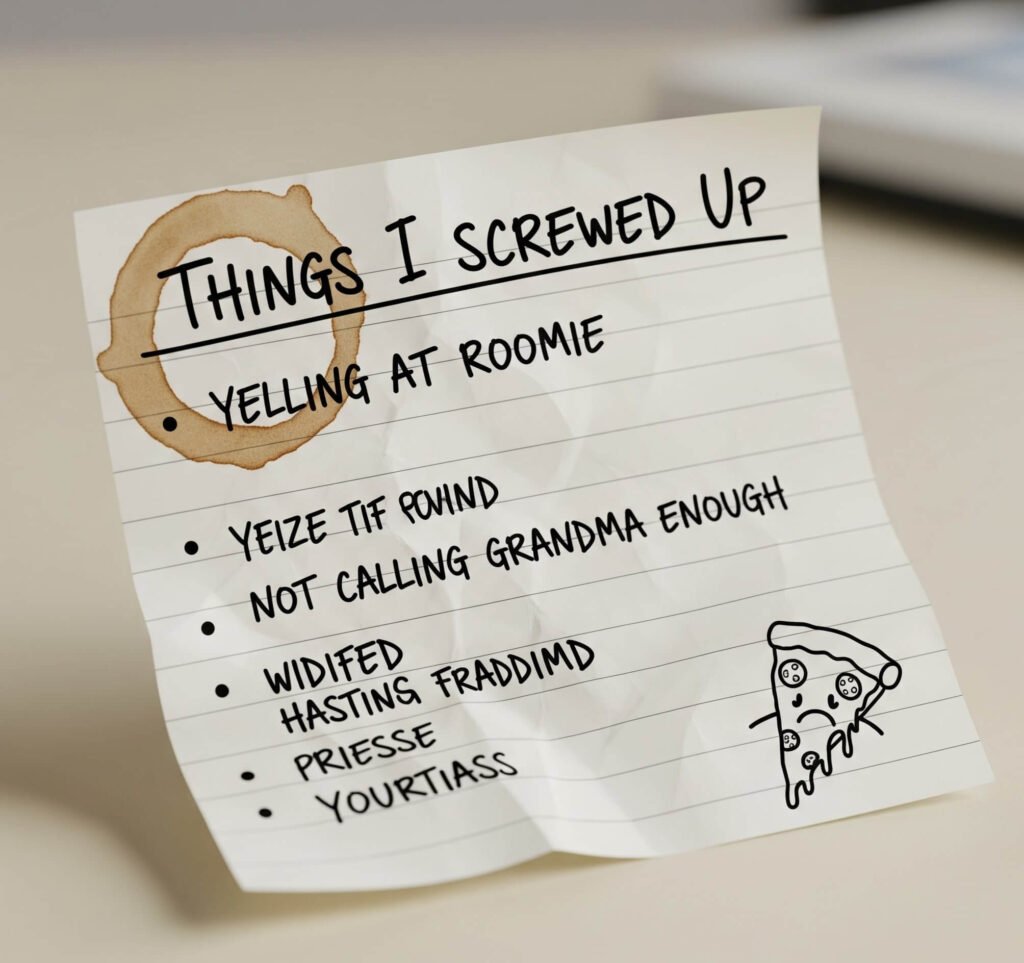 THINGS I SCREWED UP
• YELLING AT ROOMIE
• YEIZE TIF POVHND
• NOT CALLING GRANDMA ENOUGH
• WIDIFED
HASTING FRADDIMD
• PRIESSE
• YOURTIASS